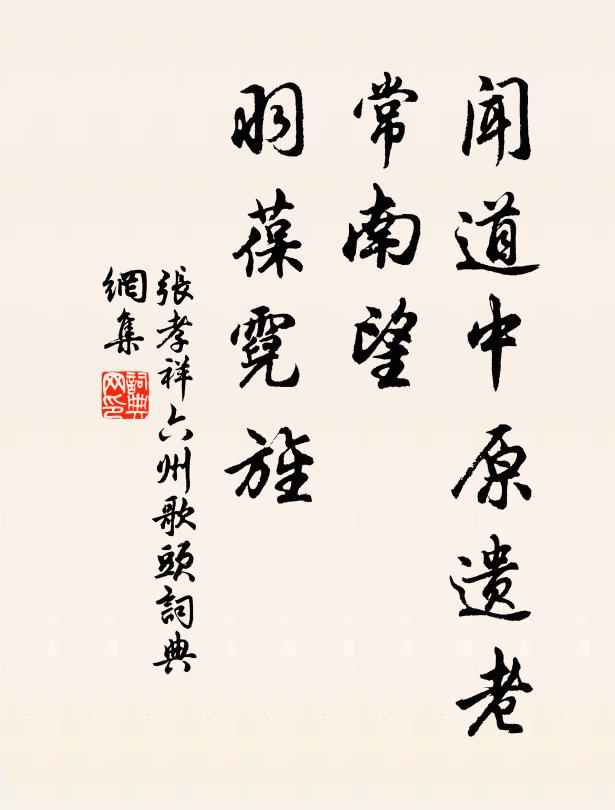 聞道中原遺老
常南望
羽葆霓旌
張孝祥六州歌頭詞典
網集
詞典
网印